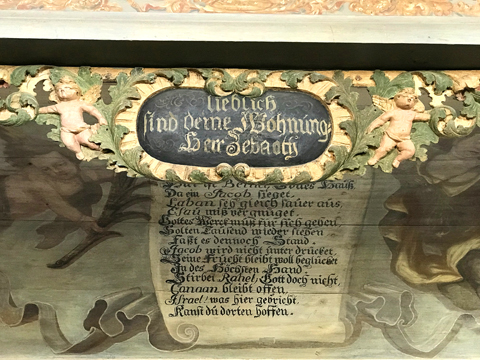 lieblich
sind deine Wohnung:
Herr Zebaoth
Da ein Jacob sieget.
Laban sey gleich sauer aus
Esau mißvergnüget.
Gottes Werck muß für sich gehen
Solten Tausend wieder stehen
Faßt es dennoch Stand.
Jacob wird nicht unter drücket.
Seine Frucht bleibt woll beglücket
In des Höchsten Hand.
Stirbet Rahel, Gott doch nicht,
Canaan bleibt offen.
Israel! was hier gebricht.
Kanst du dorten hoffen.